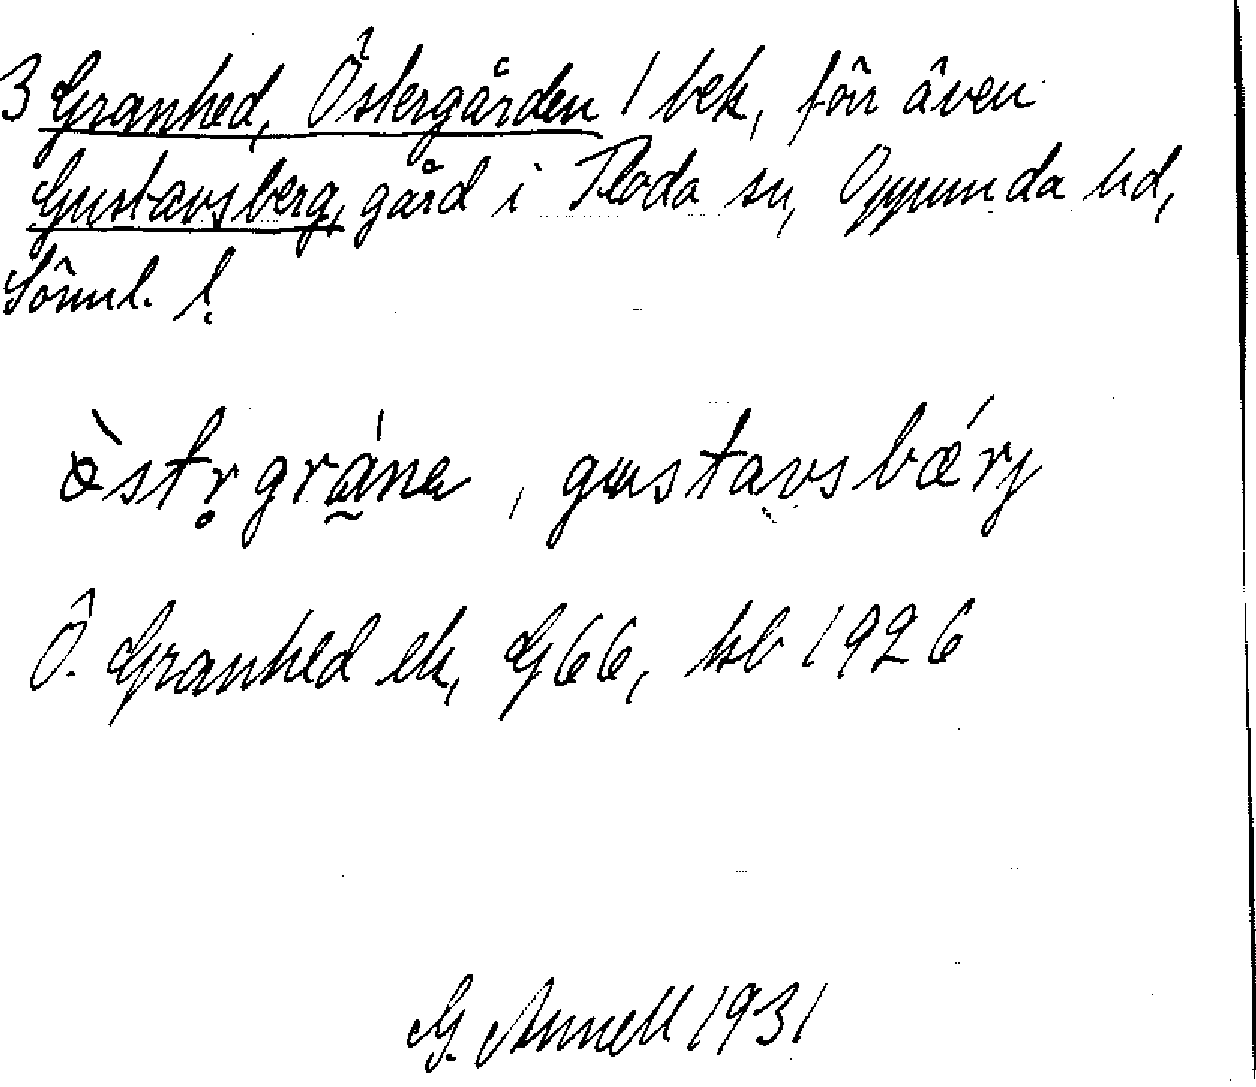 3 Granhed, Östergården 1 bek, förr även
Gustavsberg, gård i Floda sn, Oppunda hd,
Sörml. l.
östr̥ gråna, gustavsbærj
Ö. Granhed ek, G66, hsb 1926
G. Annell 1931